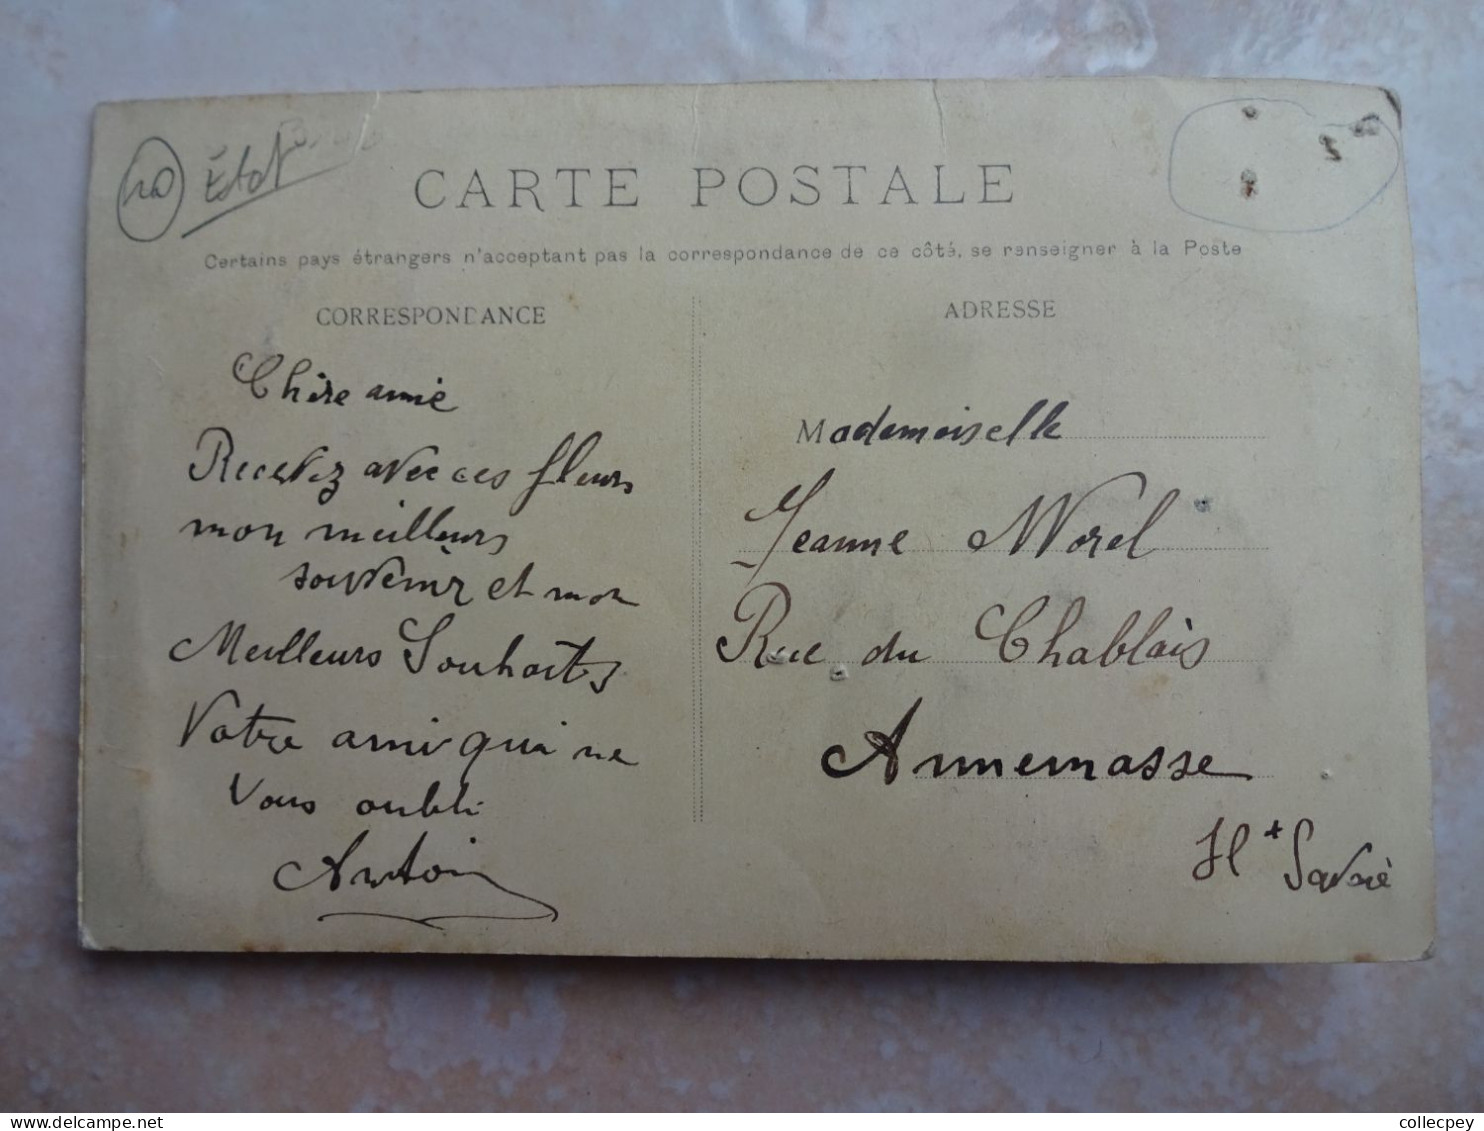 20 État
CARTE POSTALE
Certains pays étrangers n'acceptant pas la correspondance de ce côté, se renseigner à la Poste
CORRESPONDANCE
Chère amie
Recevez avec ces fleurs
mon meilleurs
souvenir et mon
Meilleurs Souhaits
Votre ami qui ne
Vous oubli
Antoin
ADRESSE
Mademoiselle
Jeanne Morel
Rue du Chablais
Annemasse
Hte Savoie
collecpey